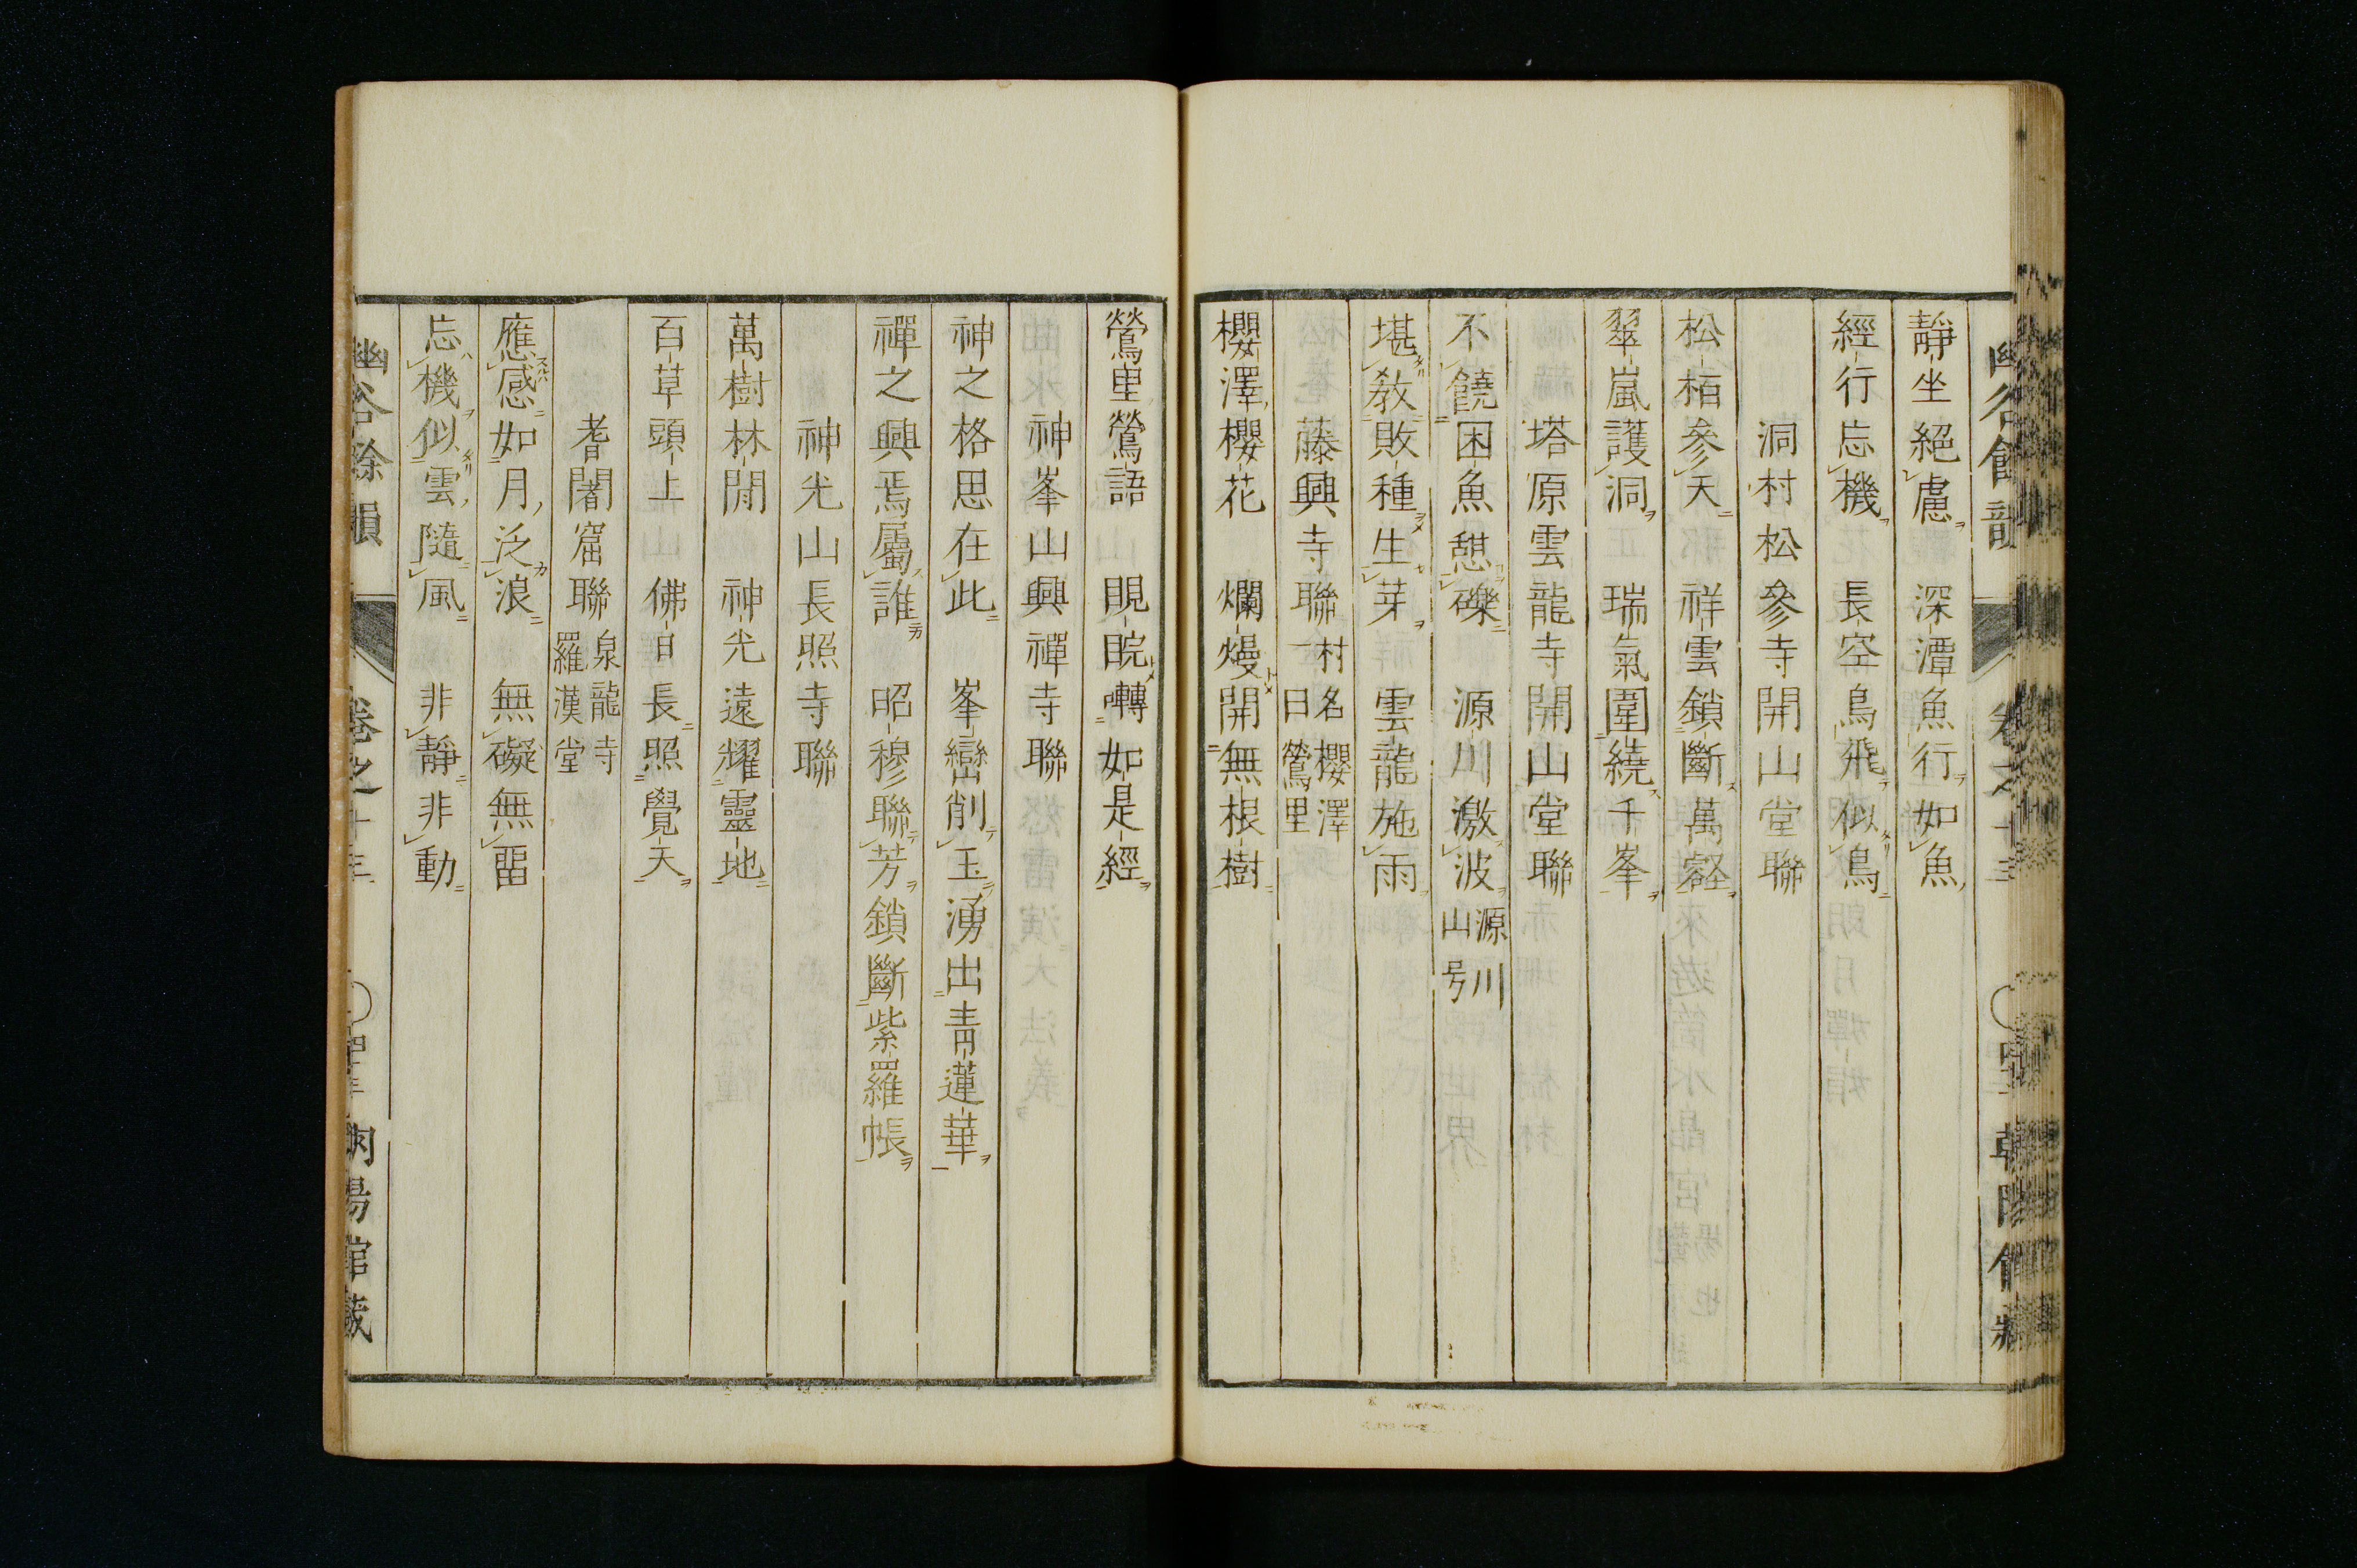 靜坐絕慮　深潭魚行如魚
經行忘機　長空鳥飛似鳥
洞村松參寺開山堂聯
松栢參天　祥雲鎖斷萬壑
翠嵐護洞　瑞氣圍繞千峯
塔原雲龍寺開山堂聯
不饒困魚憇礫　源川激波 源川山号
堪敎敗種生芽　雲龍施雨
藤興寺聯 村名櫻澤一曰鶯里
櫻澤櫻花　爛熳開無根樹
鶯里鶯語　睍睆囀如是經
神峯山興禪寺聯
神之格思在此　峯巒削玉湧出靑蓮華
禪之興焉屬誰　昭穆聯芳鎖斷紫羅帳
神光山長照寺聯
萬樹林閒　神光遠耀靈地
百草頭上　佛日長照覺天
耆闍窟聯 泉龍寺羅漢堂
應感如月泛浪　無礙無畱
忘機似雲隨風　非靜非動
幽谷餘韻　卷之十三　朝陽館藏